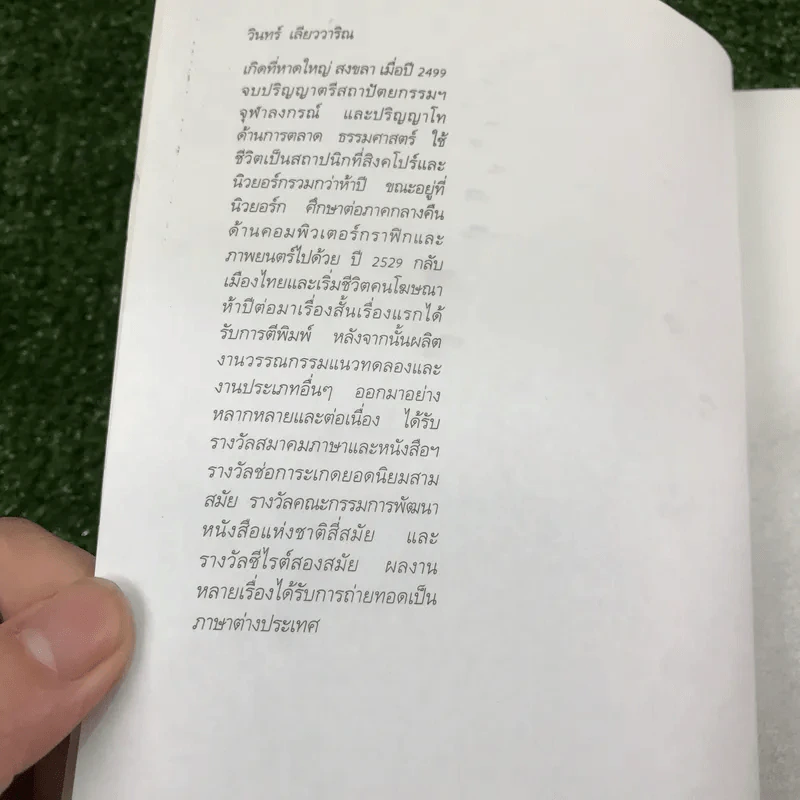 วินทร์ เลียววาริณ
เกิดที่หาดใหญ่ สงขลา เมื่อปี 2499
จบปริญญาตรีสถาปัตยกรรมฯ
จุฬาลงกรณ์ และปริญญาโท
ด้านการตลาด ธรรมศาสตร์ ใช้
ชีวิตเป็นสถาปนิกที่สิงคโปร์และ
นิวยอร์กรวมกว่าห้าปี ขณะอยู่ที่
นิวยอร์ก ศึกษาต่อภาคกลางคืน
ด้านคอมพิวเตอร์กราฟิกและ
ภาพยนตร์ไปด้วย ปี 2529 กลับ
เมืองไทยและเริ่มชีวิตคนโฆษณา
ห้าปีต่อมาเรื่องสั้นเรื่องแรกได้
รับการตีพิมพ์ หลังจากนั้นผลิต
งานวรรณกรรมแนวทดลองและ
งานประเภทอื่นๆ ออกมาอย่าง
หลากหลายและต่อเนื่อง ได้รับ
รางวัลสมาคมภาษาและหนังสือฯ
รางวัลช่อการะเกดยอดนิยมสาม
สมัย รางวัลคณะกรรมการพัฒนา
หนังสือแห่งชาติสี่สมัย และ
รางวัลซีไรต์สองสมัย ผลงาน
หลายเรื่องได้รับการถ่ายทอดเป็น
ภาษาต่างประเทศ